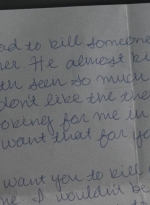 ad to kill someone
her. He almost ki
th seen so much
don't like the the
ooking for me in
want that for yo
want you to kill
me I wouldn't be